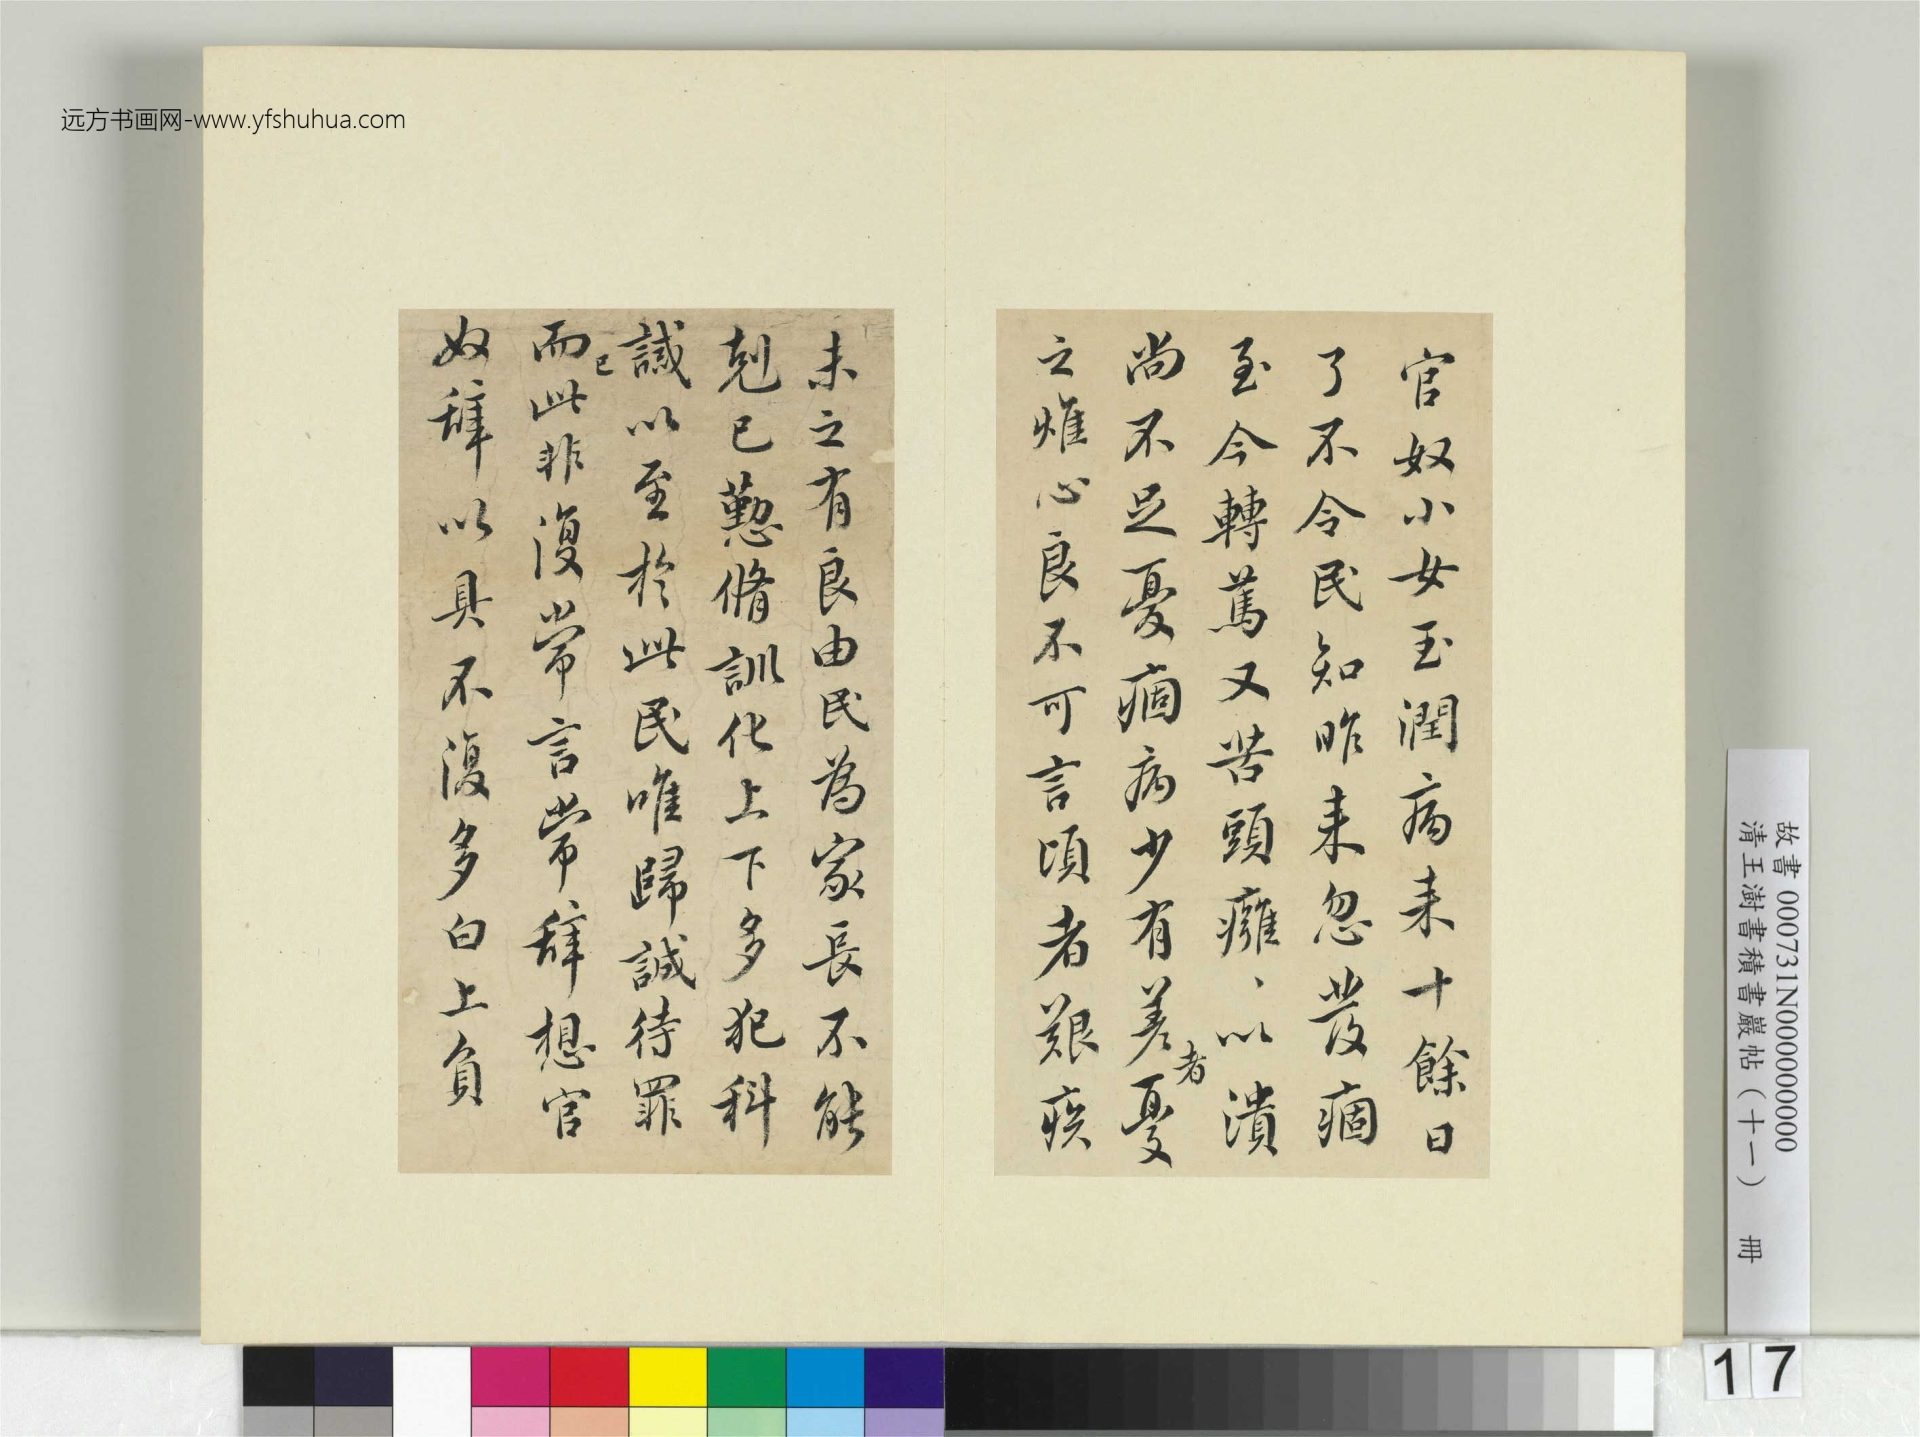 远方书画网-www.yfshuhua.com
官奴小女玉潤病来十餘日
了不令民知昨来忽發痼
至今轉篤又苦頭癰、以潰
尚不足憂痼病少有差者憂
之燋心良不可言頃者艱疾
未之有良由民為家長不能
剋已懃脩訓化上下多犯科
誡以至於此民唯歸誠待罪
而已此非復常言常辭想官
奴辭以具不復多白上負
故書 000731N000000000
清王澍書積書巖帖（十一） 冊
17